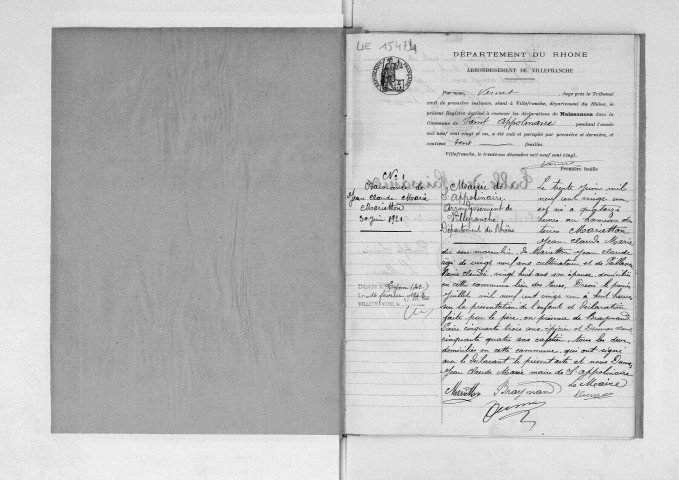 4E 15474
DÉPARTEMENT DU RHONE
ARRONDISSEMENT DE VILLEFRANCHE
Par nous, Juge près le Tribunal
civil de première instance, séant à Villefranche, département du Rhône, le
présent Registre destiné à recevoir les déclarations de Naissances dans la
Commune de Saint Appolinaire pendant l'année
mil neuf cent vingt et un, a été coté et paraphé par première et dernière, et
contient feuilles.
Villefranche, le décembre mil neuf cent vingt.
Première feuille
No 1
Naissance de
Jean Claude Marie
Marietton
30 Juin 1921
Mairie de
St Appolinaire
Arrondissement de
Villefranche
Département du Rhône
Le trente Juin mil
neuf cent vingt un
est né à quatorze
heures au hameau des
terres Marietton
Jean Claude Marie
du sexe masculin, de Marietton Jean Claude
âgé de vingt neuf ans cultivateur, et de
Marie Claudia, vingt huit ans son épouse, domiciliés
en cette commune lieu des terres. Dressé le premier
Juillet mil neuf cent vingt un à huit heures
sur la présentation de l'enfant et déclaration
faite par le père, en présence de
cinquante trois ans, épicier et Dumas
cinquante quatre ans cafetier, tous les deux
domiciliés en cette commune, qui ont signé
avec le déclarant le présent acte et nous Dumas
Jean Claude Marie maire de St Appolinaire
Le Maire
Marietton
Dumas